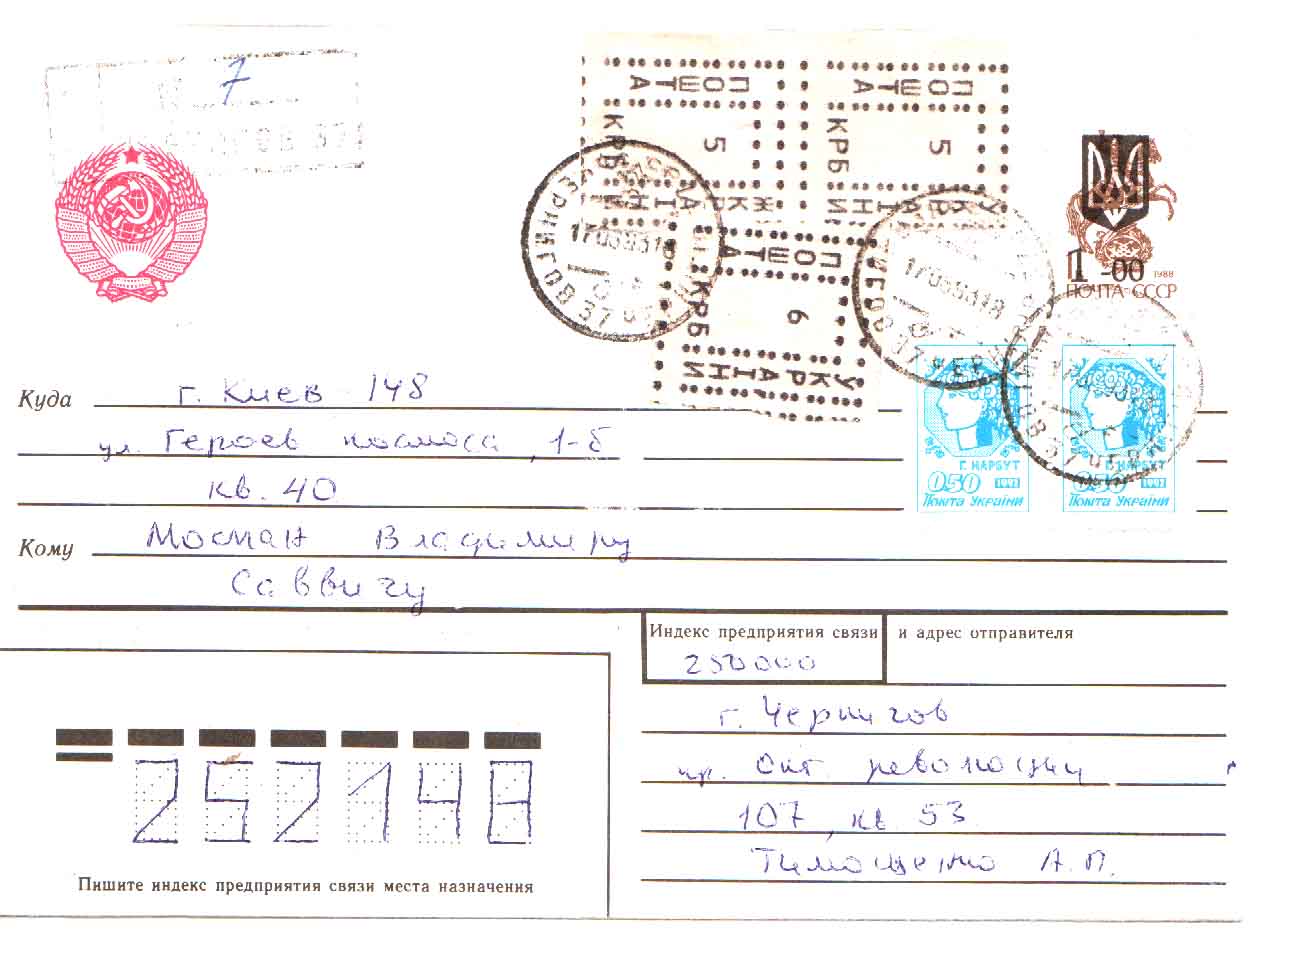 7
ПОШТА
5
КРБ
УКРАЇНИ
ПОШТА
5
КРБ
УКРАЇНИ
ПОШТА
6
КРБ
УКРАЇНИ
1-00
1988
ПОЧТА СССР
ЧЕРНИГОВ 37
Г. НАРБУТ
0,50 1992
Пошта України
Г. НАРБУТ
0,50 1992
Пошта України
Куда г. Киев - 148
ул. Героев космоса, 1-б
кв. 40
Кому Мосман Владимиру
Саввичу
Индекс предприятия связи и адрес отправителя
250000
г. Чернигов
пр. Окт. революции
107, кв 53
Тимощенко А.П.
252148
Пишите индекс предприятия связи места назначения